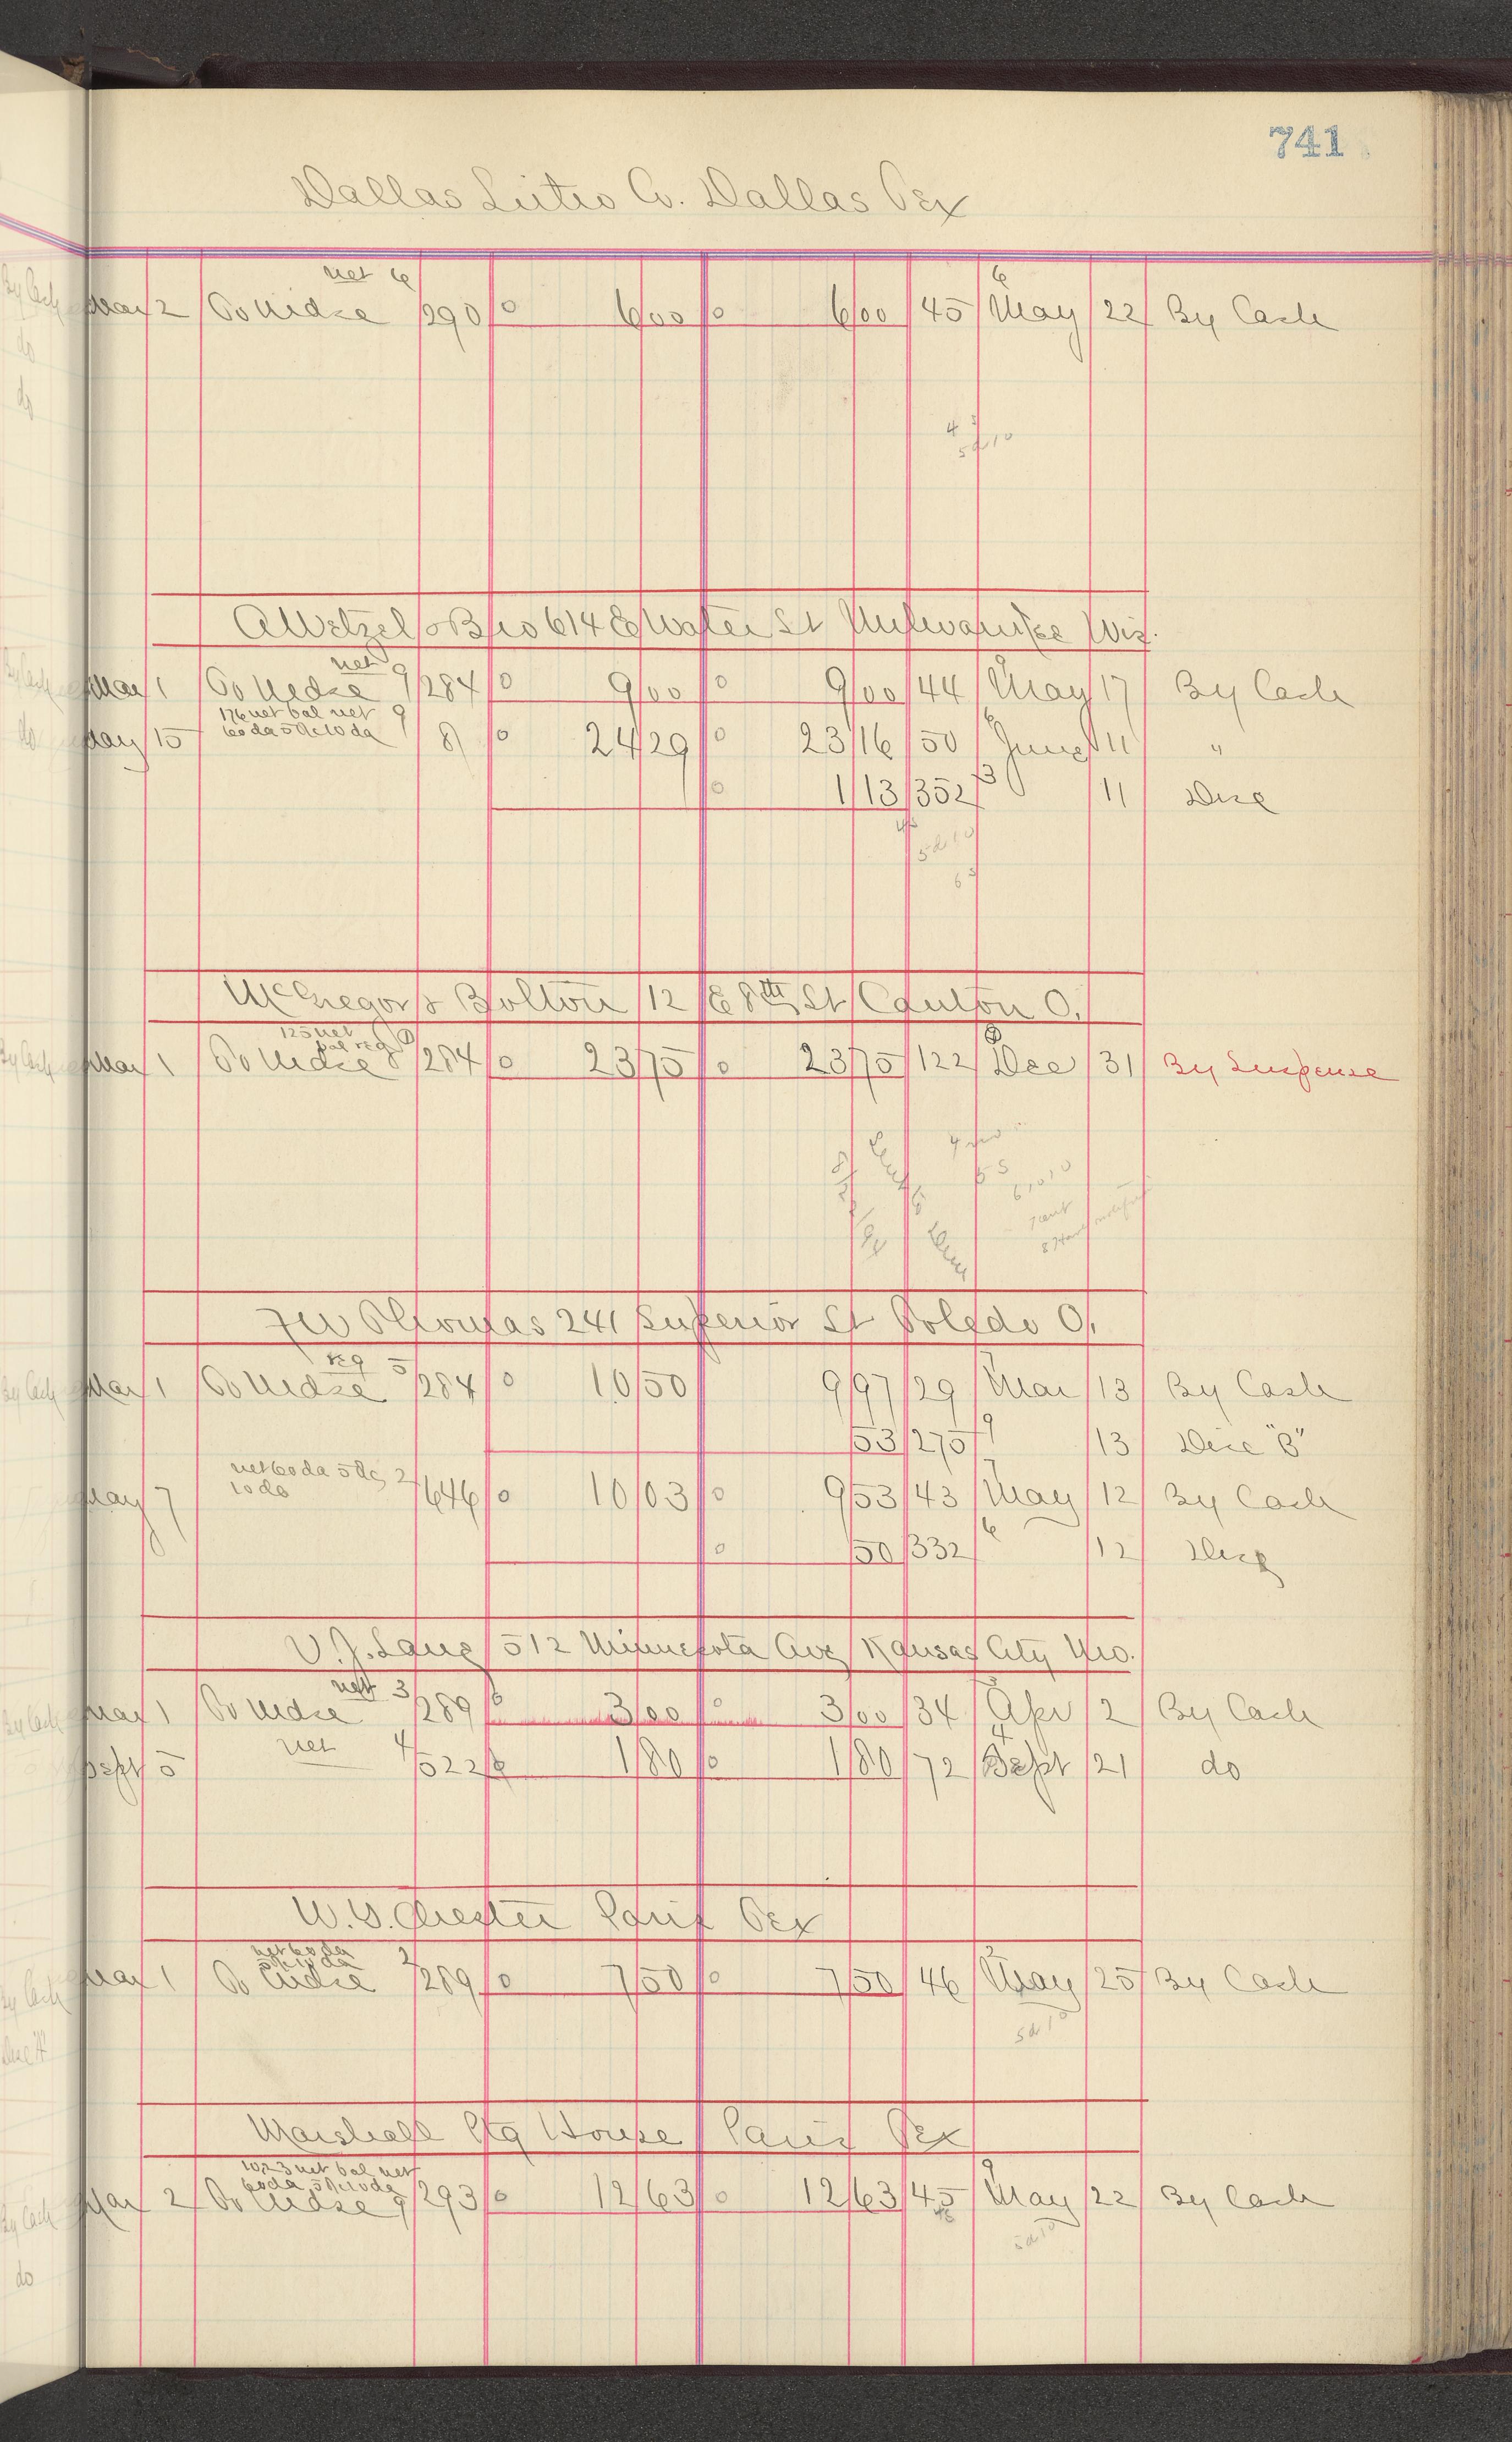 741
Dallas Litho Co. Dallas Tex
net 6
Mar 2 To Mdse 290 0 6 00 0 6 00 45 May 22 By Cash
6
4
5 d 10
A Wetzel & Bro 614 E Water St Milwaukee Wis.
net 9
Mar 1 To Mdse 284 0 9 00 0 9 00 44 May 17 By Cash
176 net bal net 9
May 15 60 da 5% 10 da 81 0 24 29 0 23 16 50 June 11 "
0 1 13 352 3 11 Disc
5 d 10
6
McGregor & Bolton 12 E 8th St Canton O.
125 net
bal reg
Mar 1 To Mdse 8 284 0 23 75 0 23 75 122 Dec 31 By Suspense
4
5 5
6 10 10
F W Thomas 241 Superior St Toledo O.
reg 5
Mar 1 To Mdse 284 0 10 50 9 97 29 Mar 13 By Cash
53 275 9 13 Disc "B"
net 60 da 5% 2
10 da
May 7 646 0 10 03 0 9 53 43 May 12 By Cash
0 50 332 6 12 Disc
V. J. Lane 512 Minnesota Ave Kansas City Mo.
net 3
Mar 1 To Mdse 289 0 3 00 0 3 00 34 Apr 2 By Cash
net 4
Sept 5 522 0 1 80 0 1 80 72 Sept 21 do
W. G. Chester Paris Tex
net 60 da
5% 10 da 2
Mar 1 To Mdse 289 0 7 50 0 7 50 46 May 25 By Cash
5 d 10
Marshall Ptg House Paris Tex
10.23 net bal net
60 da 5% 10 da
Mar 2 To Mdse 9 293 0 12 63 0 12 63 45 May 22 By Cash
5 d 10